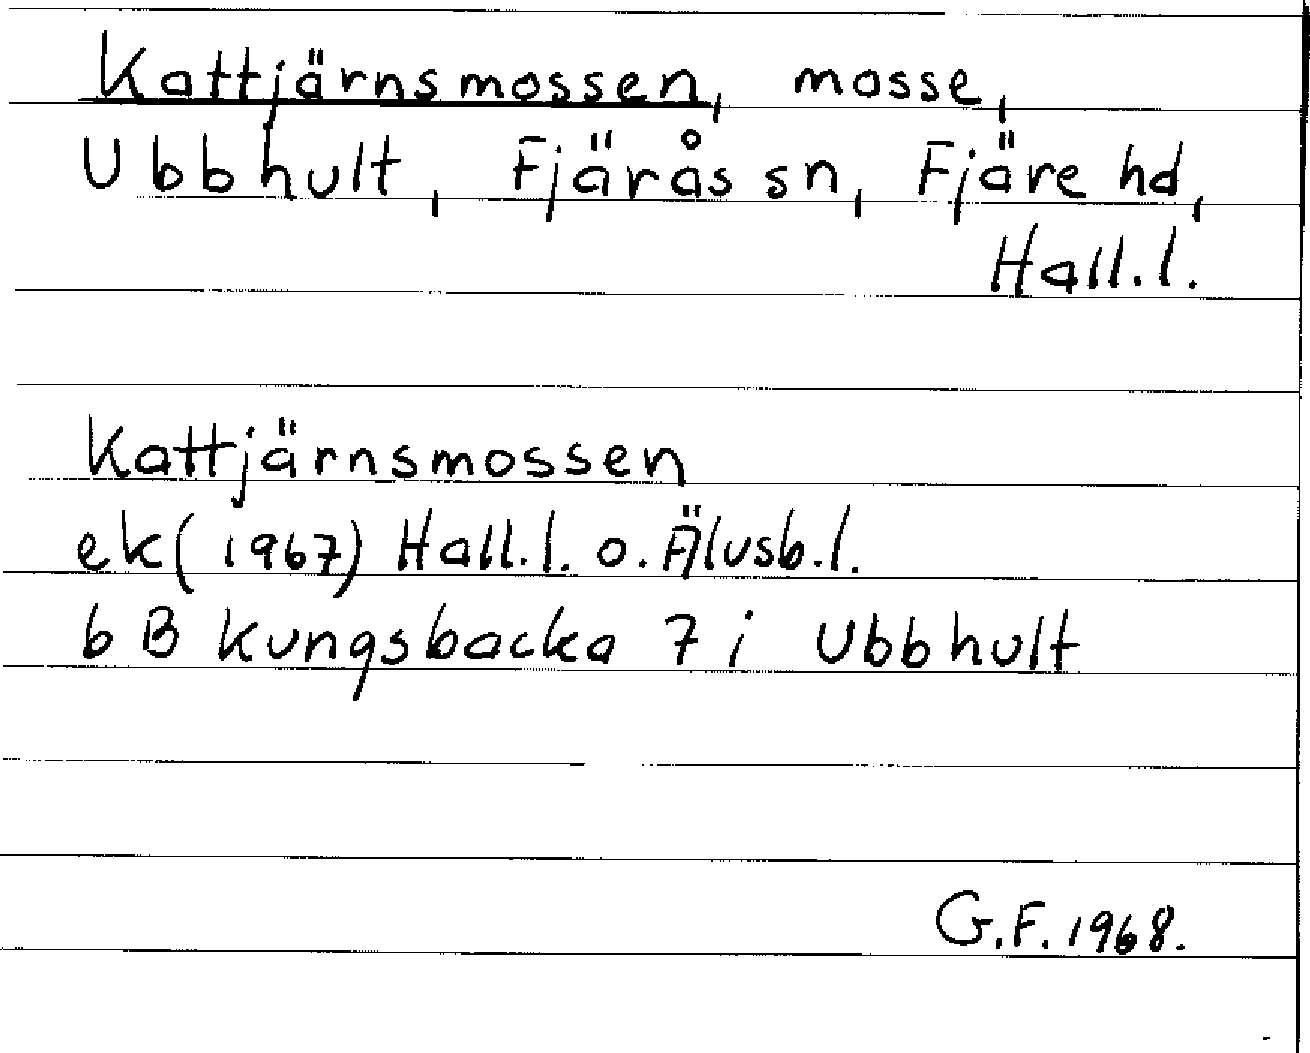 Kattjärnsmossen, mosse,
Ubbhult, Fjärås sn, Fjäre hd,
Hall.l.
Kattjärnsmossen
ek(1967) Hall.l. o. Älvsb.l.
6 B Kungsbacka 7 i Ubbhult
G.F. 1968.